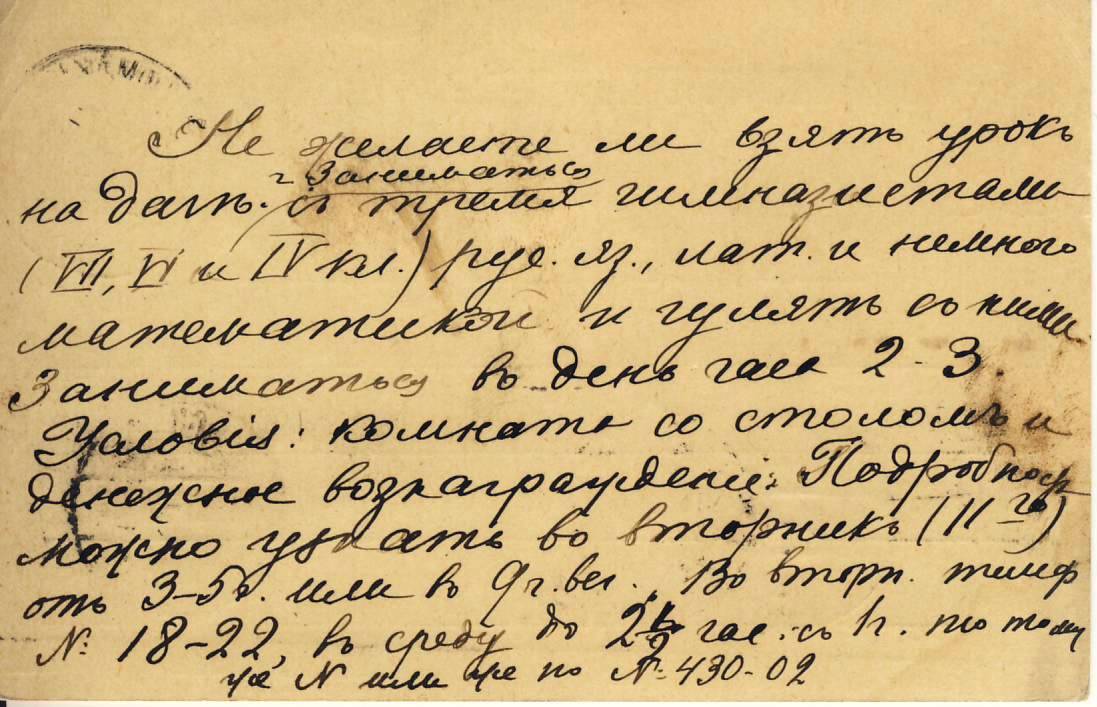 Не желаете ли взять урокъ
заниматься
на дачѣ. съ тремя гимназистами
(VII, VI и IV кл.) рус. яз., лат. и немного
математикой и гулять со ними.
Заниматься въ день часа 2-3.
Условія: комната со столомъ и
денежное вознагражденіе. Подробност
можно узнать во вторникъ (11го)
отъ 3-5 ч. или въ 9 ч. веч. Во вторн.
№: 18-22, въ среду до час. съ по тому
же N или же по № 430-02